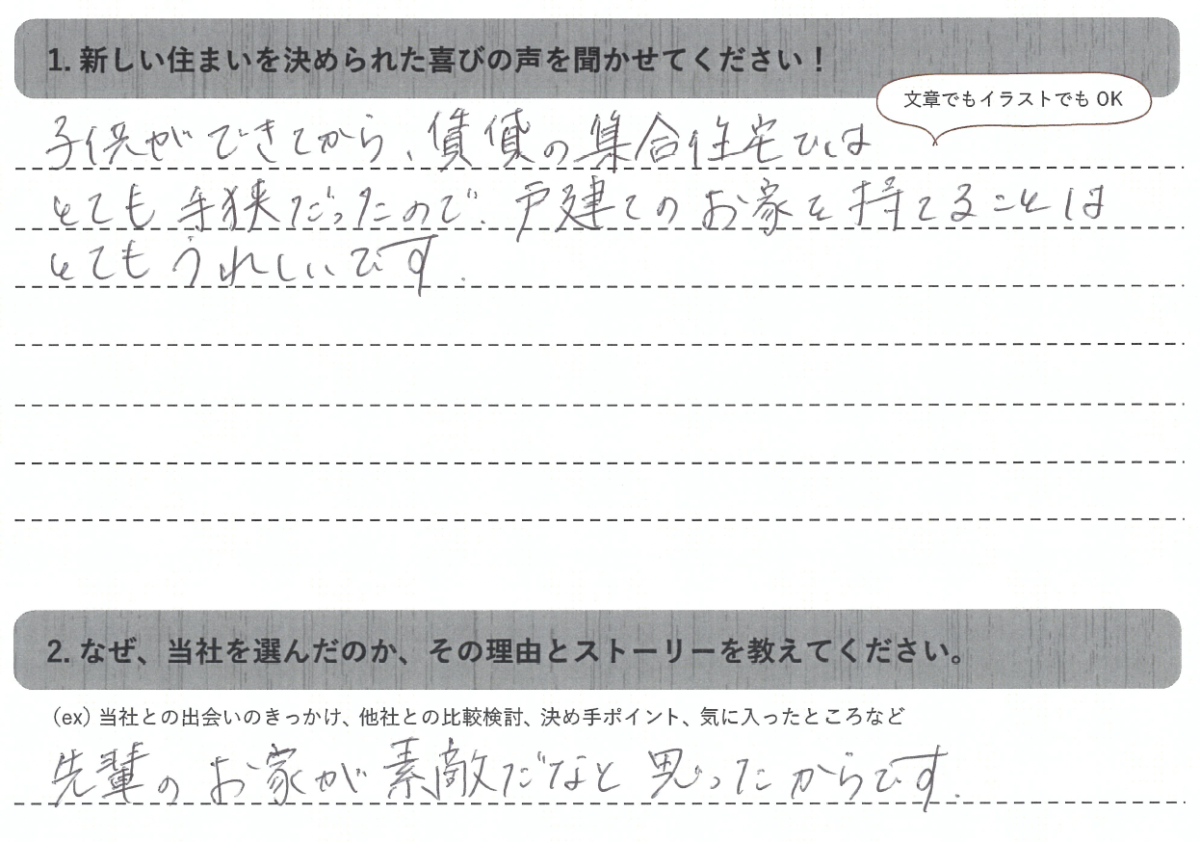 1. 新しい住まいを決められた喜びの声を聞かせてください！
文章でもイラストでも OK
子供ができてから、賃貸の集合住宅では
とても手狭だったので、戸建てのお家を持てることは
とてもうれしいです.
2. なぜ、当社を選んだのか、その理由とストーリーを教えてください。
（ex）当社との出会いのきっかけ、他社との比較検討、決め手ポイント、気に入ったところなど
先輩のお家が素敵だなと思ったからです.